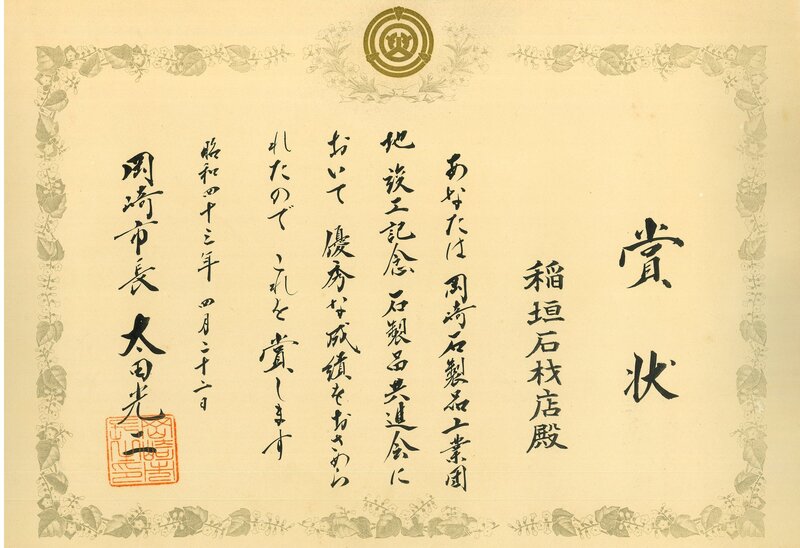 賞状
稲垣石材店殿
あなたは岡崎石製品工業団
地竣工記念石製品共進会に
おいて優秀な成績をおさめら
れたのでこれを賞します
昭和四十三年四月二十二日
岡崎市長太田光二
岡崎市長之印